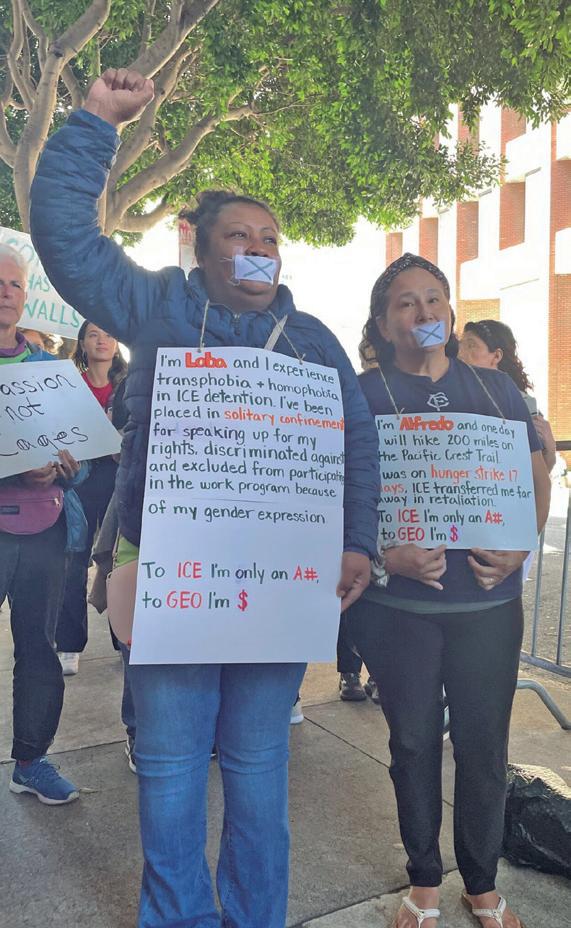 HAS
WALLS
not
Cages
I'm Loba and I experience
transphobia + homophobia
in ICE detention. I've been
placed in solitary confinement
for speaking up for my
rights, discriminated against
and excluded from participating
in the work program because
of my gender expression
To ICE I'm only an A#,
to GEO I'm $
I'm Alfredo and one day
will hike 200 miles on
the Pacific Crest Trail.
was on hunger strike 17
days, ICE transferred me far
away in retaliation.
To ICE I'm only an A#,
to GEO I'm $